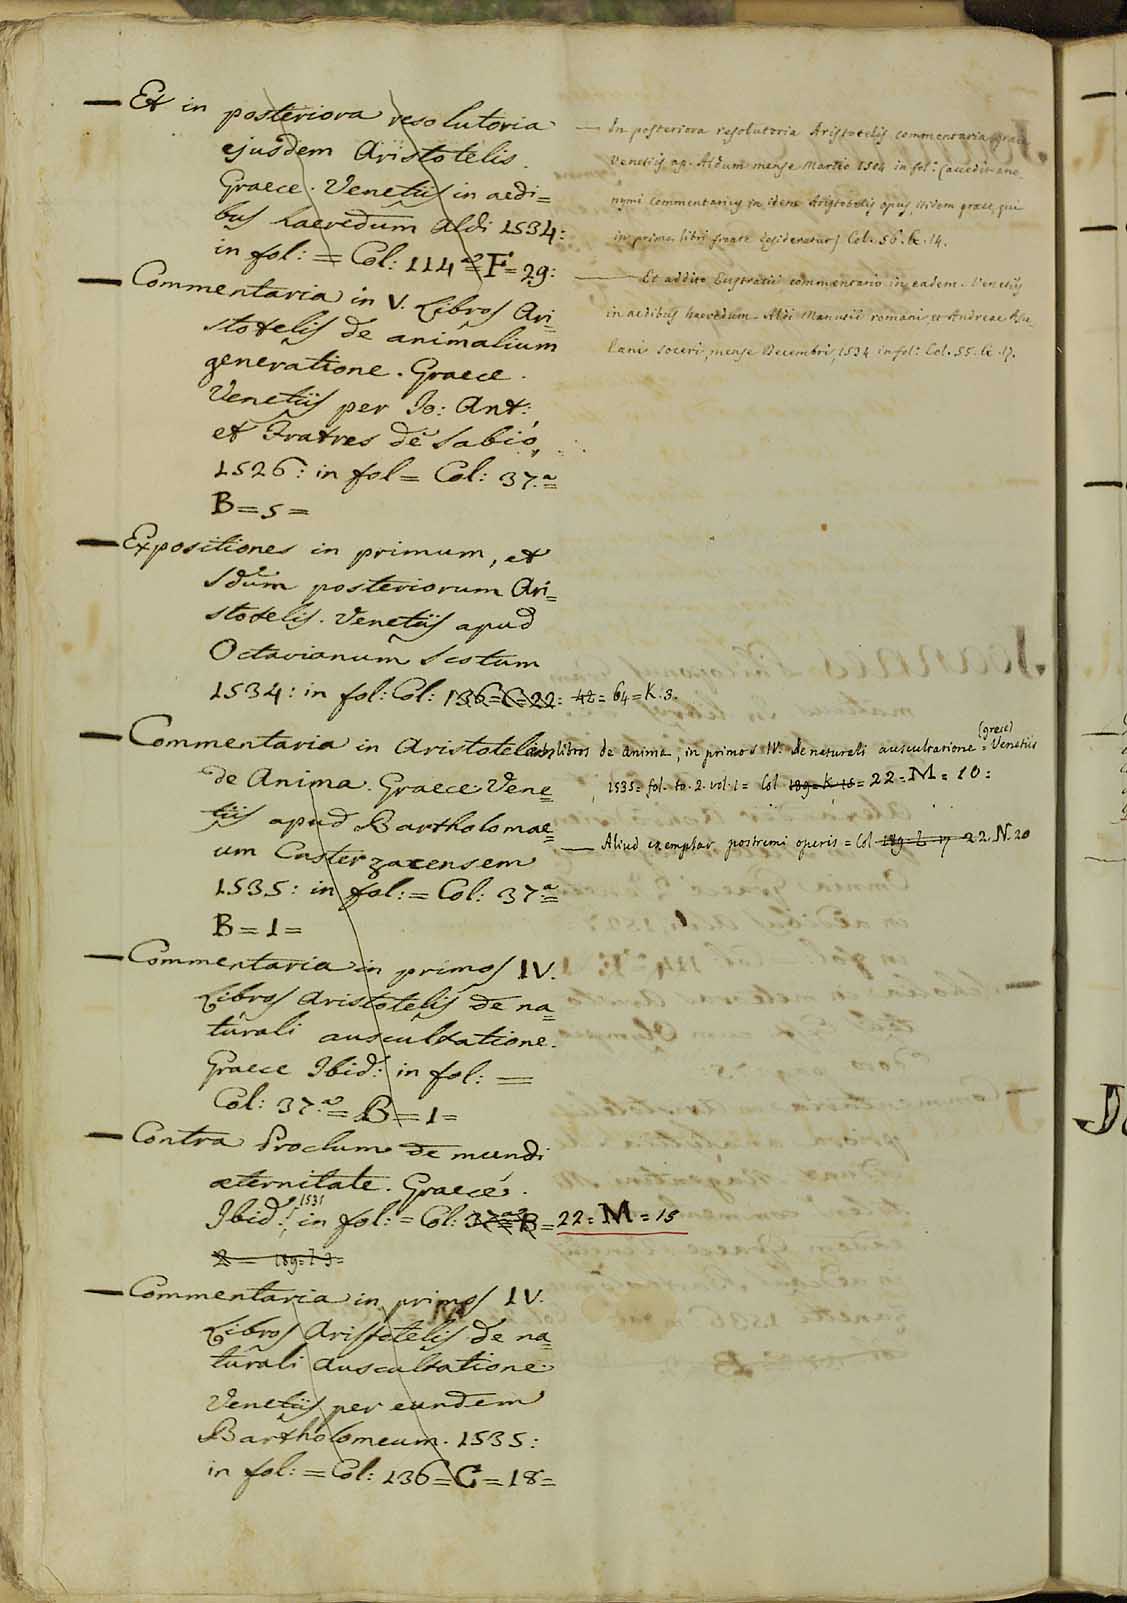 — Et in posteriora resolutoria
ejusdem Aristotelis.
Graece. Venetiis in aedi=
bus haeredum Aldi 1534:
in fol: = Col: 114.a = F = 29:
— Commentaria in V. Libros Ari=
stotelis de animalium
generatione. Graece.
Venetiis per Jo: Ant:
et Fratres de Sabio,
1526: in fol = Col: 37.a =
B = 5 =
— Expositiones in primum, et
Sdum posteriorum Ari=
stotelis. Venetiis apud
Octavianum Scotum
1534: in fol: Col: 136 = C = 22: 42 = 64 = K. 3.
— Commentaria in Aristotelis
de Anima. Graece Vene=
tiis apud Bartholomae=
um Casterzacensem
1535: in fol: = Col: 37.a =
B = 1 =
— Commentaria in primos IV.
Libros Aristotelis de na=
turali auscultatione.
Graece Ibid: in fol: =
Col: 37.a = B = 1 =
— Contra Proclum de mundi
aeternitate. Graece.
Ibid: 1535 in fol: = Col: 37.a = B = 22 = M = 15
2 = 189 = L 3 =
— Commentaria in primos IV.
Libros Aristotelis de na=
turali auscultatione
Venetiis per eundem
Bartholomeum. 1535:
in fol: = Col: 136 = C = 18 =
— In posteriora resolutoria Aristotelis commentaria graece
Venetiis ap. Aldum mense Martio 1504 in fol: (accedit ano=
nymi commentarius in idem Aristotelis opus, itidem graece, qui
in primo libri fronte desideratur) Col. 56. lc. 14.
— Et addito Eustratii commentario in eadem. Venetiis
in aedibus haeredum Aldi Manutii romani et Andreae Asu=
lani soceri, mense Decembri, 1534 in fol: Col. 55. lc. 17.
libros de anima, in primos IV. de naturali auscultatione (grece) = Venetiis
1535 = fol. to. 2. vol. 1 = Col 189 = K 18 = 22 = M = 10:
— Aliud exemplar postremi operis = Col 189 = L 17 22. N. 20